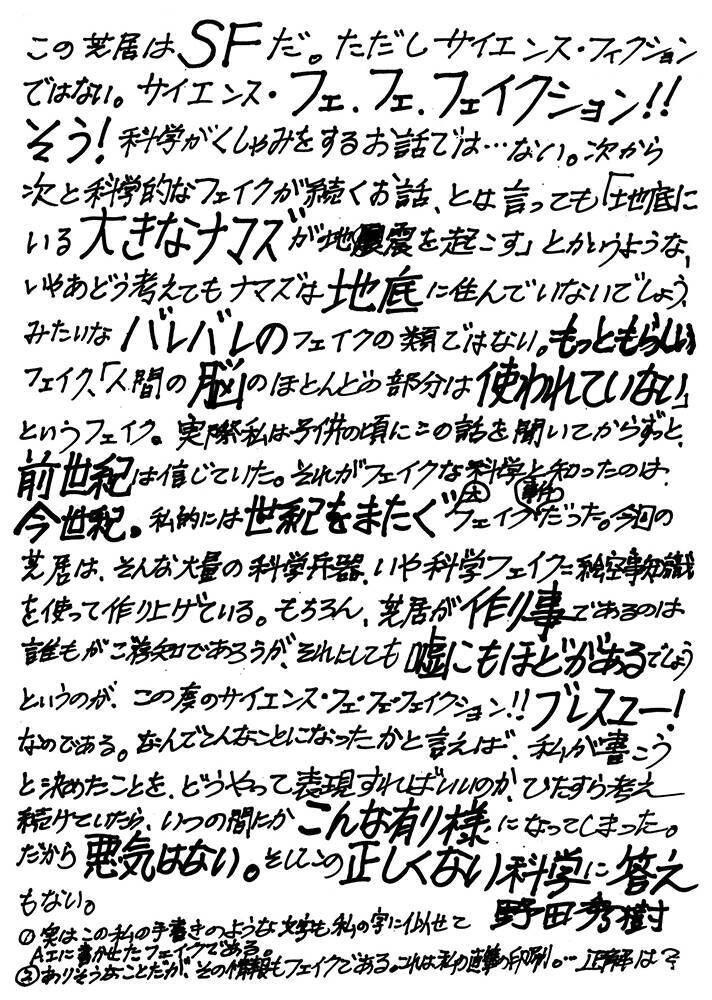 この芝居はSFだ。ただしサイエンス・フィクション
ではない。サイエンス・フェ、フェ、フェイクション!!
そう！科学がくしゃみをするお話では…ない。次から
次と科学的なフェイクが続くお話、とは言っても「地底に
いる大きなナマズが地震を起こす」とかいうような、
いやあどう考えてもナマズは地底に住んでいないでしょう、
みたいなバレバレのフェイクの類ではない。もっともらしい
フェイク、「人間の脳のほとんどの部分は使われていない」
というフェイク。実際私は子供の頃にこの話を聞いてからずっと、
前世紀は信じていた。それがフェイクな科学と知ったのは、
今世紀。私的には世紀をまたぐフェイクだった。今回の
芝居は、そんな大量の科学兵器、いや科学フェイク=絵空事知識
を使って作り上げている。もちろん、芝居が作り事であるのは
誰もがご存知であろうが、それにしても嘘にもほどがあるでしょう
というのが、この度のサイエンス・フェ・フェ・フェイクション!!ブレスユー!
なのである。なんでこんなことになったかと言えば、私が書こう
と決めたことを、どうやって表現すればいいのか、ひたすら考え
続けていたら、いつの間にかこんな有り様になってしまった。
だから悪気はない。そしてこの正しくない科学に答え
もない。
野田秀樹
①実はこの私の手書きのような文字も私の字に似せて
AIに書かせたフェイクである。
②ありそうなことだが、その情報もフェイクである。これは私の直筆の印刷。…正解は？